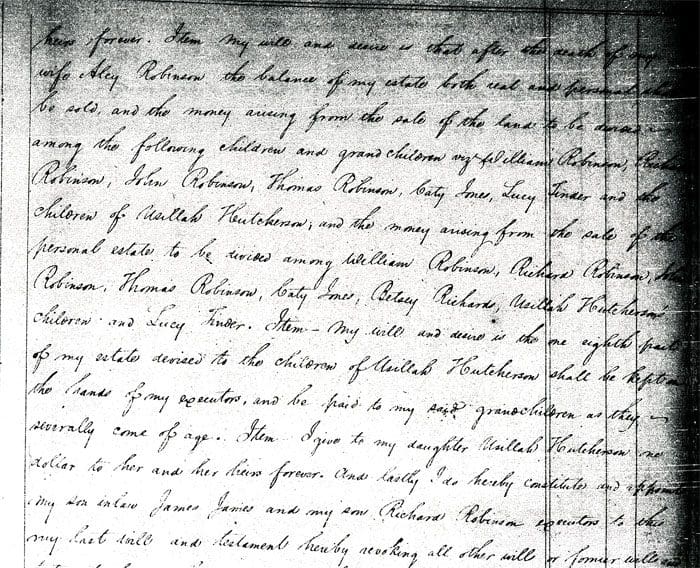 heirs forever. Item my will and desire is that after the death of my
wife Aley Robinson the balance of my estate both real and personal shall
be sold, and the money arising from the sale of the land to be devised
among the following children and grandchildren viz William Robinson, Richard
Robinson, John Robinson, Thomas Robinson, Caty Jones, Lucy Tinder and the
children of Usillah Hutcherson, and the money arising from the sale of the
personal estate to be divided among William Robinson, Richard Robinson, John
Robinson, Thomas Robinson, Caty Jones, Betsey Richards, Usillah Hutcherson's
children and Lucy Tinder. Item - my will and desire is the one eighth part
of my estate devised to the children of Usillah Hutcherson shall be kept in
the hands of my executors, and be paid to my said grandchildren as they
severally come of age. Item I give to my daughter Usillah Hutcherson one
dollar to her and her heirs forever. And lastly I do hereby constitute and appoint
my son inlaw James James and my son Richard Robinson executors to this
my last will and testament hereby revoking all other wills or former wills and